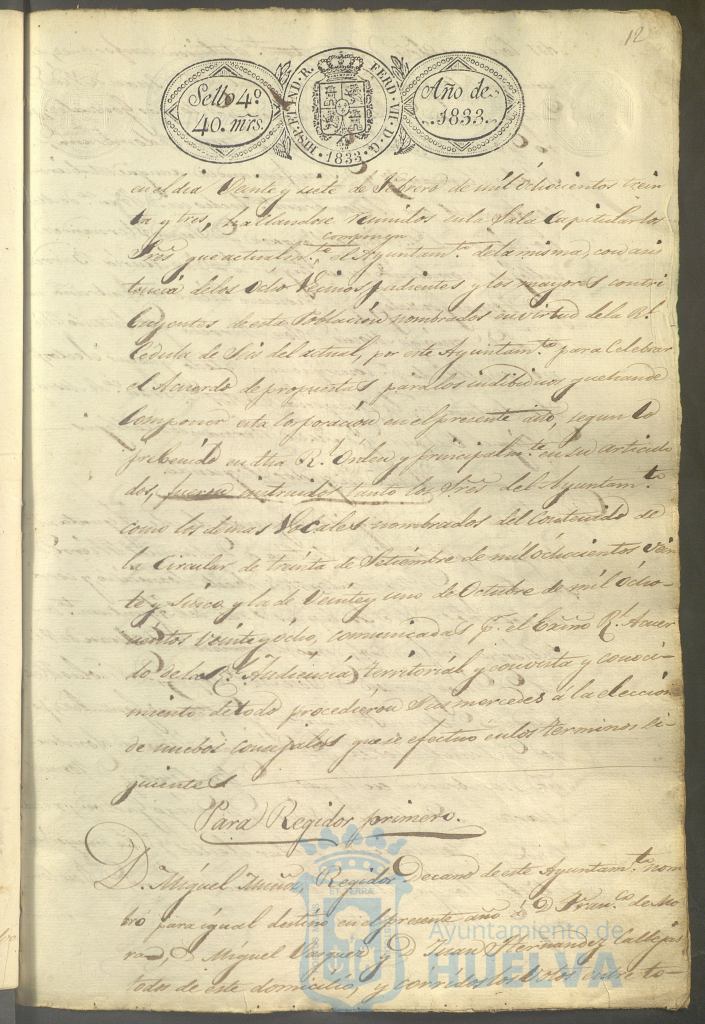 12
Sello 4º
40. mrs.
HISP. ET IND. R. FERD. VII. D. G.
1833.
Año de
1833.
en el dia Veinte y siete de Febrero de mil ochocientos trein
ta y tres, hallandose reunidos en la Sala Capitular los
componen
Sres que actualmte el Ayuntamto de la misma, con asis
tencia de los Ocho Vecinos pudientes y los mayores contri
buyentes de esta Poblacion nombrados en virtud de la Rl
Cedula de Seis del actual, por este Ayuntamto para Celebrar
el Acuerdo de propuestas para los individuos que han de
componer esta Corporacion en el presente año, segun lo
prebenido en dha Rl Orden y principalmte en su articulo
dos, fueron instruidos tanto los Sres del Ayuntamto
como los demas Vocales nombrados del Contenido de
la Circular de treinta de Setiembre de mil ochocientos Vein
te y Sinco, y la de Veinte y uno de Octubre de mil Ocho-
cientos Veinte y Ocho, comunicadas p. el Exmo Rl Acuer
do de la Rl Audiencia territorial y con vista y conoci
miento de todo procedieron Sus mercedes á la eleccion
de nuebos Consejales que se efectuo en los terminos si-
guientes
Para Regidor primero.
D. Miguel Regidor Decano de este Ayuntamto nom
bro para igual destino en el presente año á D Franco de Mo
ra, D Miguel Vazquez y D Juan Hernandez Callejas
todos de este domicilio, y corridos los Votos entre to-
ET TERRA
Ayuntamiento de
HUELVA